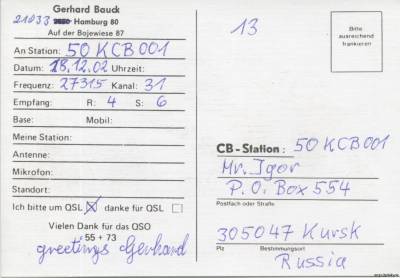 Gerhard Bauck
21033 Hamburg 80
Auf der Bojewiese 87
An Station: 50 KCB 001
Datum: 18.12.02 Uhrzeit:
Frequenz: 27315 Kanal: 31
Empfang: R: 4 S: 6
Base: Mobil:
Meine Station:
Antenne:
Mikrofon:
Standort:
Ich bitte um QSL danke für QSL
Vielen Dank für das QSO
55 + 73
greetings Gerhard
13
Bitte
ausreichend
frankieren
CB-Station: 50 KCB 001
Mr. Igor
P.O. Box 554
Postfach oder Straße
305047 Kursk
Plz Bestimmungsort
Russia